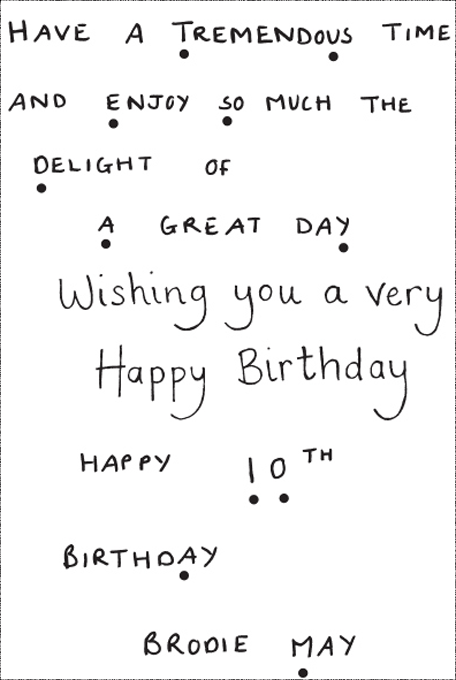 HAVE A TREMENDOUS TIME
AND ENJOY SO MUCH THE
DELIGHT OF
A GREAT DAY
Wishing you a very
Happy Birthday
HAPPY 10TH
BIRTHDAY
BRODIE MAY